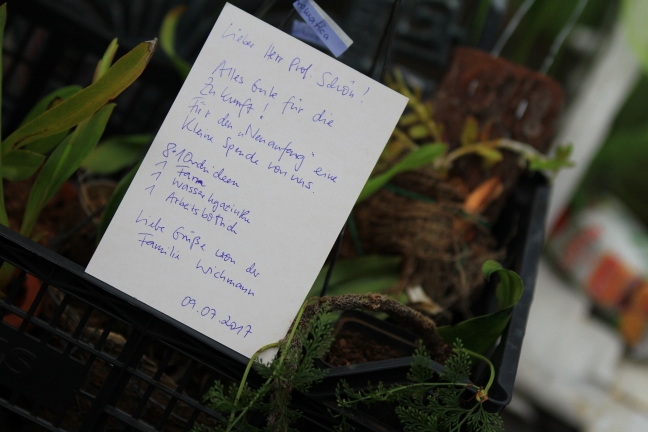 Lieber Herr Prof. Schön!
Alles Gute für die
Zukunft!
Für den "Neuanfang" eine
kleine Spende von uns.
8-10 Orchideen
1 Farn
1 Wasserhyazinthe
1 Arbeitsbottich
Liebe Grüße von der
Familie Wichmann
09.07.2017